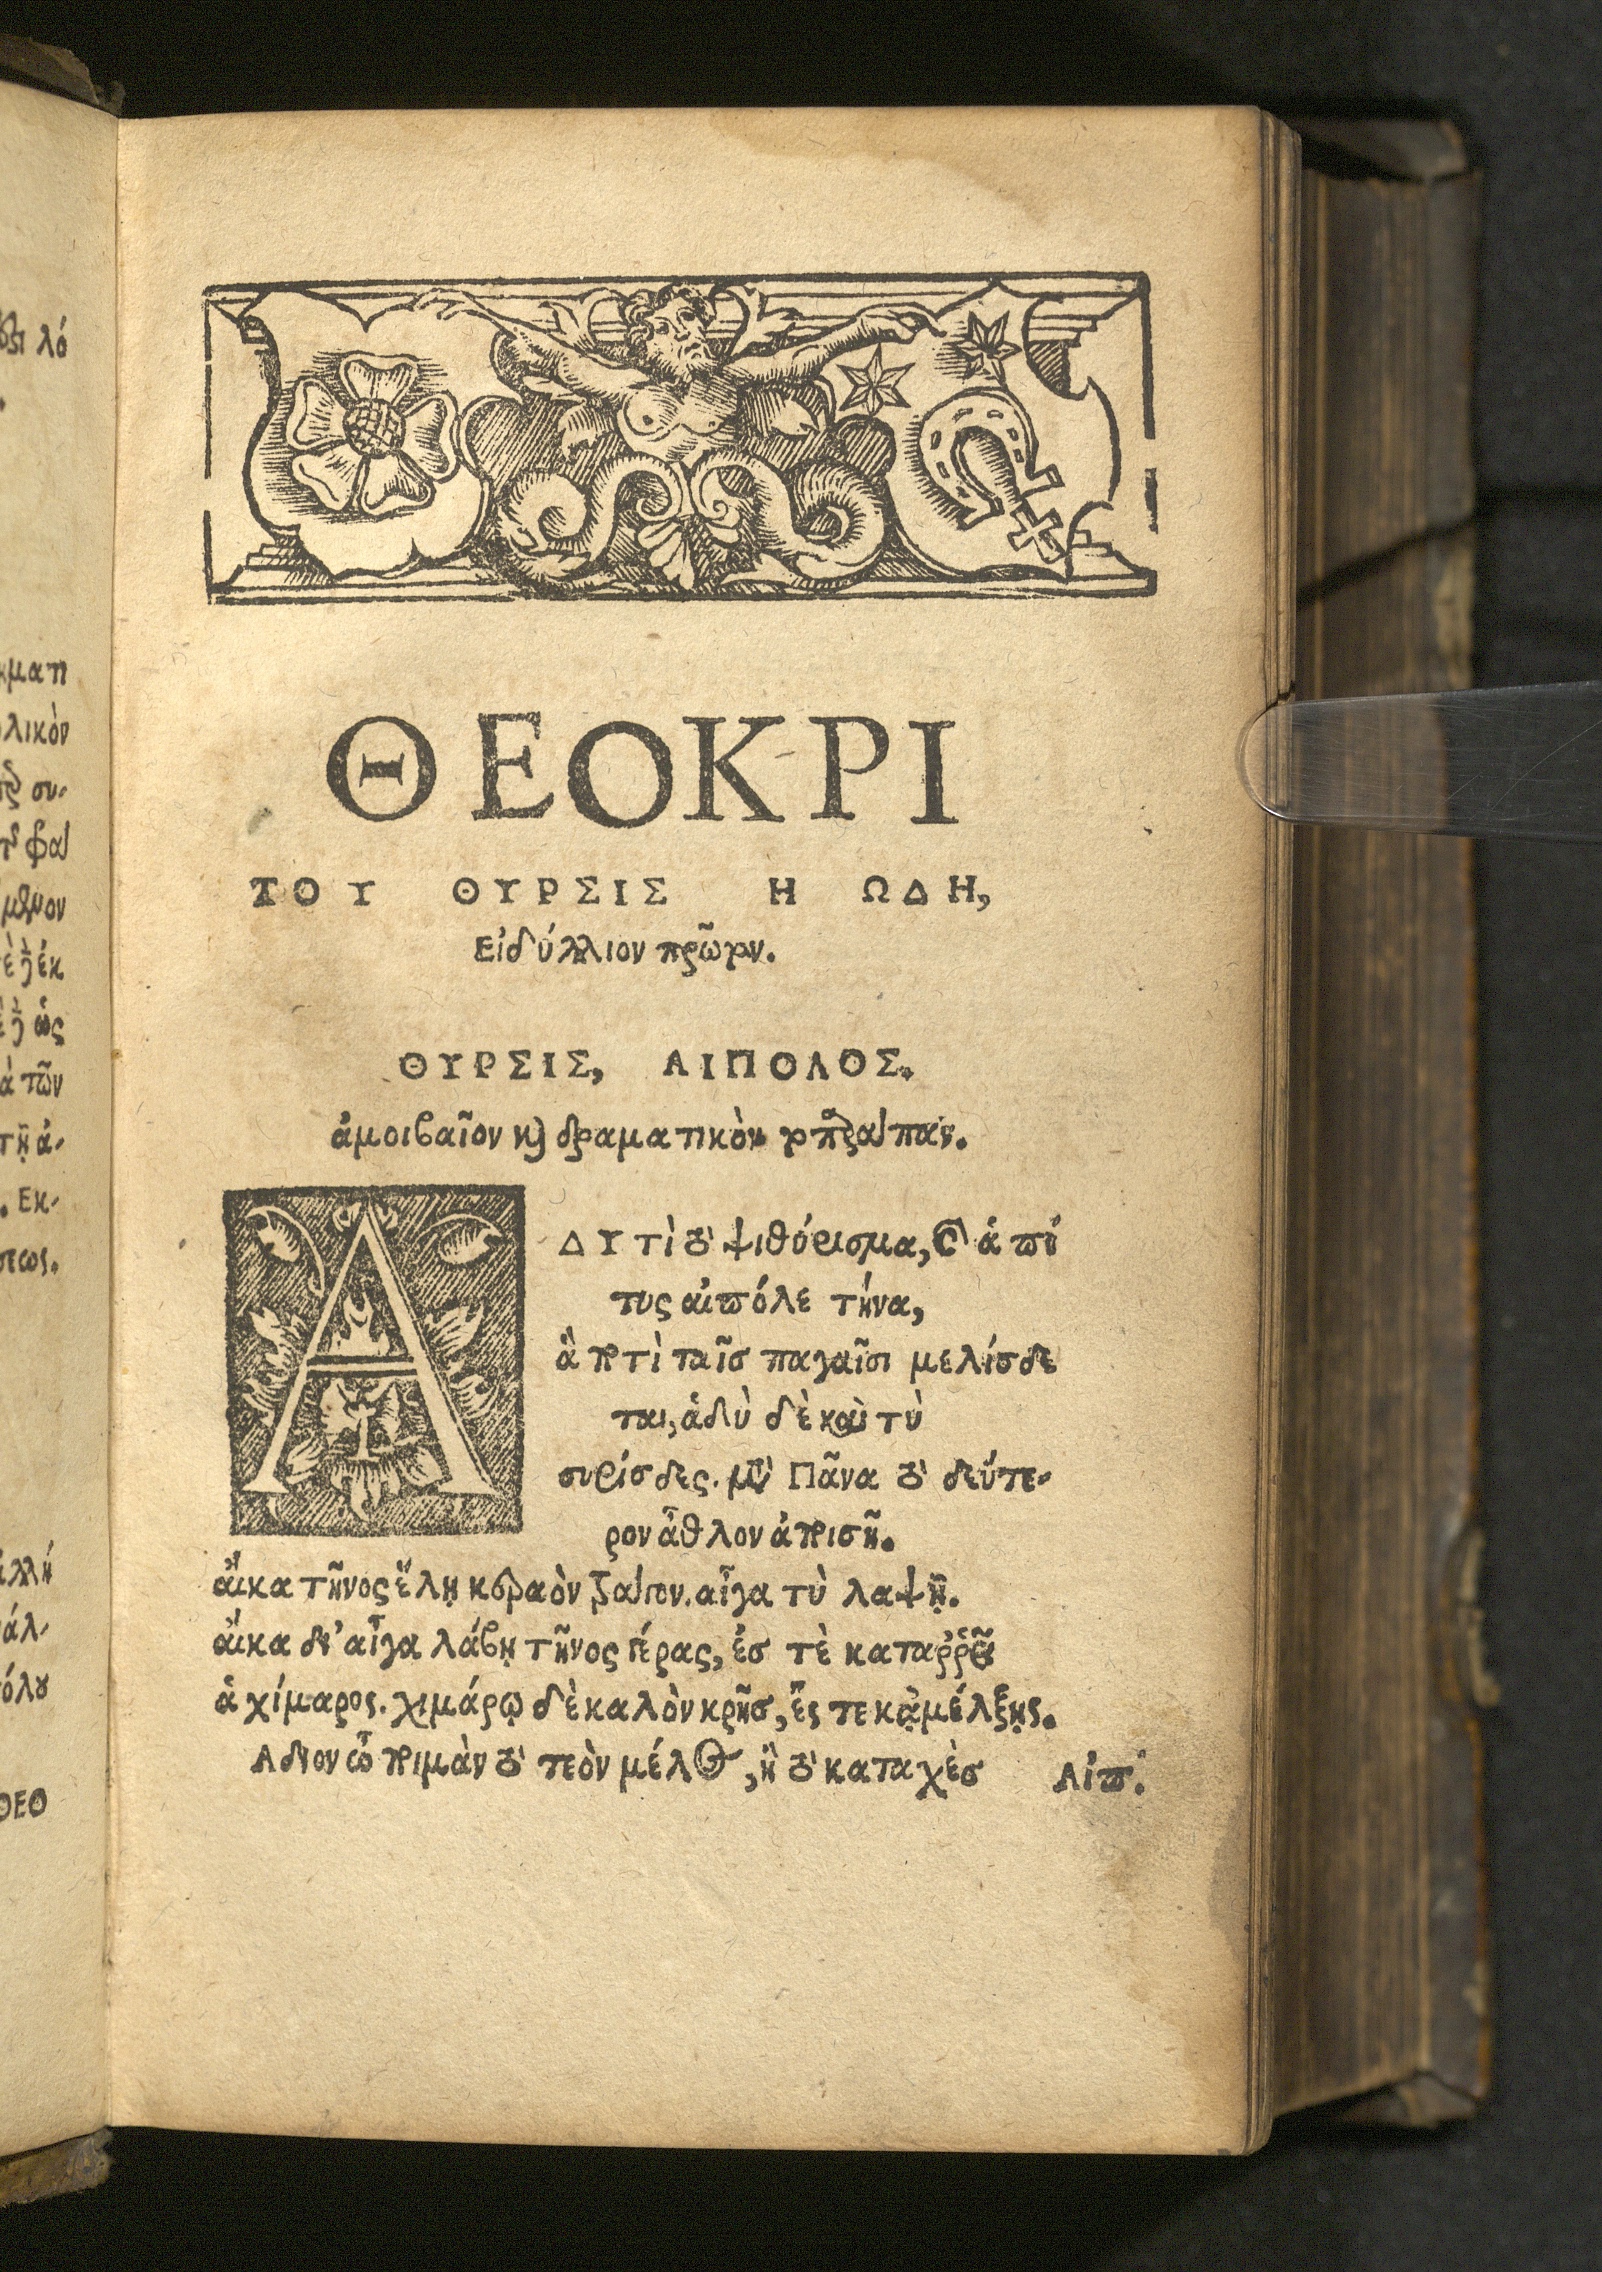 ΘΕΟΚΡΙ
ΤΟΥ ΘΥΡΣΙΣ Η ΩΔΗ,
Εἰδύλλιον πρῶτον.
ΘΥΡΣΙΣ, ΑΙΠΟΛΟΣ.
ἀμοιβαῖον καὶ δραματικὸν
ΑΔΥ τὶ τὸ ψιθύρισμα, καὶ ἁ πί
τυς αἰπόλε τήνα,
ἃ ποτὶ ταῖσ παγαῖσι μελίσδε
ται, ἁδὺ δὲ καὶ τὺ
συρίσδες. μετὰ Πᾶνα τὸ δεύτε-
ρον ἆθλον ἀποισῆ.
αἴκα τῆνος ἕλῃ κεραὸν τράγον. αἶγα τὺ λαψῇ.
αἴκα δ' αἶγα λάβῃ τῆνος γέρας, ἐσ τὲ καταῤῥεῖ
ἁ χίμαρος. χιμάρῳ δὲ καλὸν κρῆσ, ἔς τε κἀμέλξῃς.
Αδιον ὦ ποιμὰν τὸ τεὸν μέλος, ἢ τὸ καταχὲσ
Αἰπ.
λό
λικὸν
συ-
ἐκ
ὡς
τῶν
Εκ-
άλ-
ΘΕΟ